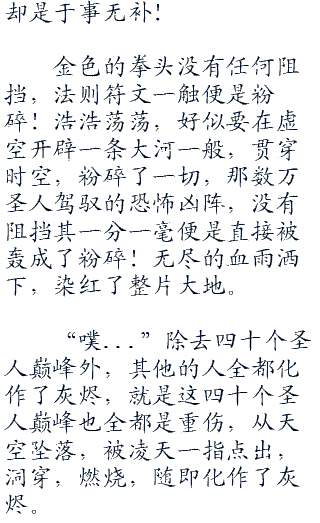 却是于事无补！
金色的拳头没有任何阻
挡，法则符文一触便是粉
碎！浩浩荡荡，好似要在虚
空开辟一条大河一般，贯穿
时空，粉碎了一切，那数万
圣人驾驭的恐怖凶阵，没有
阻挡其一分一毫便是直接被
轰成了粉碎！无尽的血雨洒
下，染红了整片大地。
“噗...”除去四十个圣
人巅峰外，其他的人全都化
作了灰烬，就是这四十个圣
人巅峰也全都是重伤，从天
空坠落，被凌天一指点出，
洞穿，燃烧，随即化作了灰
烬。